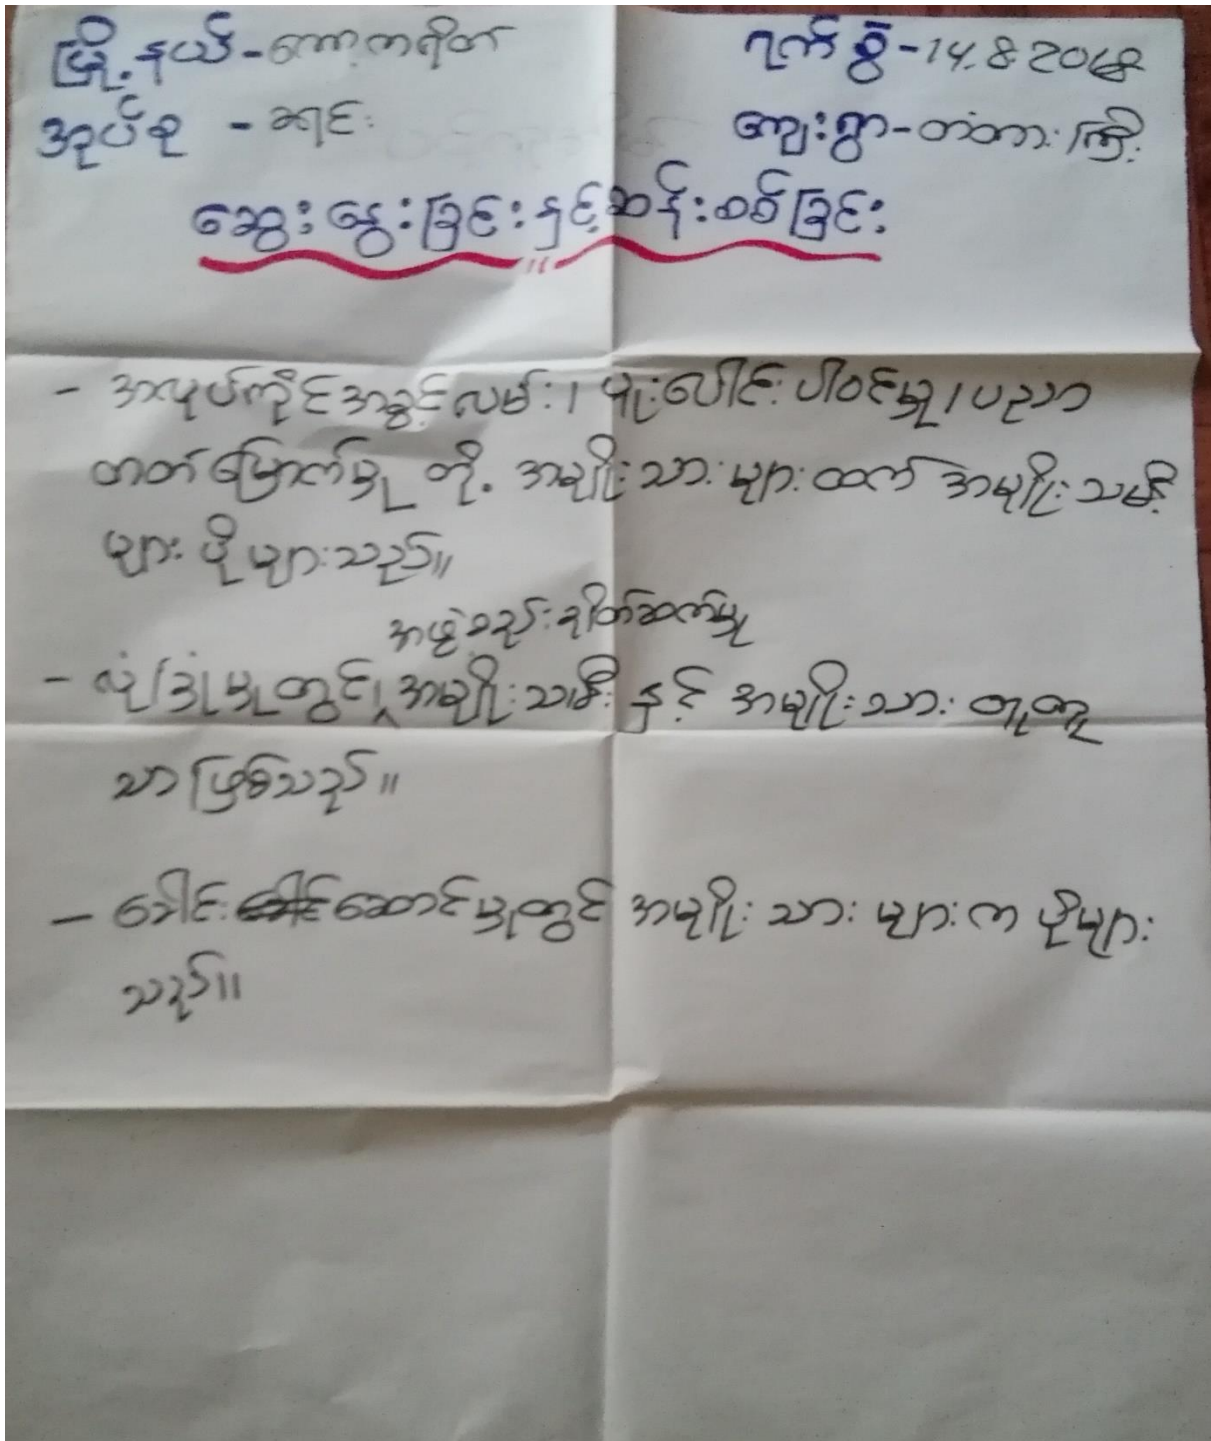 မြို့နယ်-ကော့ကရိတ် ရက်စွဲ-14.8.2018
အုပ်စု - ခရင်း ကျေးရွာ-တံတားကြီး
ဆွေးနွေးခြင်းနှင့်ဆန်းစစ်ခြင်း
- အလုပ်ကိုင်အခွင့်လမ်း၊ ပူးပေါင်းပါဝင်မှု၊ ပညာ
တတ်မြောက်မှု တို့ အမျိုးသားများထက် အမျိုးသမီး
များ ပိုများသည်။
အဖွဲ့စည်းချိတ်ဆက်မှု
- လုံခြုံမှုတွင် အမျိုးသမီးနှင့် အမျိုးသား တူတူ
သာဖြစ်သည်။
- ခေါင်းဆောင်မှုတွင် အမျိုးသားများက ပိုများ
သည်။